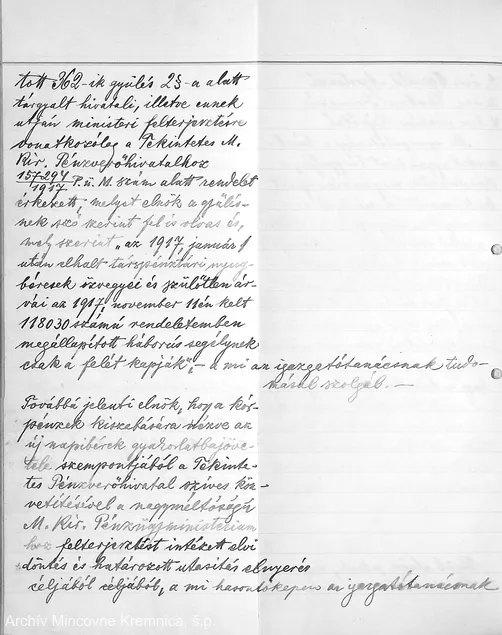 tott 362-ik gyülés 2§-a alatt
tárgyalt hivatali, illetve ennek
utján ministeri felterjesztésre
vonatkozólag a Tekintetes M.
Kir. Pénzverőhivatalhoz
157.294/1917 P.ü.M. szám alatt rendelet
érkezett, melyet elnök a gyülés-
nek szó szerint fel is olvas és,
mely szerint „az 1917, január 1
után elhalt társpénztári nyug-
béresek özvegyei és szülőtlen ár-
vái az 1917, november 11én kelt
118030 számú rendeletemben
megállapított háborús segélynek
csak a felét kapják", – a mi az igazgatótanácsnak tudo-
másul szolgál. –
Továbbá jelenti elnök, hogy a kór-
pénzek kiszabására nézve az
új napibérek gyakorlatbajöve-
tele szempontjából a Tekinte-
tes Pénzverőhivatal szíves köz-
vetítésével a nagyméltóságú
M. Kir. Pénzügyministerium
hoz felterjesztést intézett elvi
döntés és határozott utasítás elnyerés
céljából céljából, a mi hasonlóképen az igazgatótanácsnak
Archív Mincovne Kremnica, š.p.